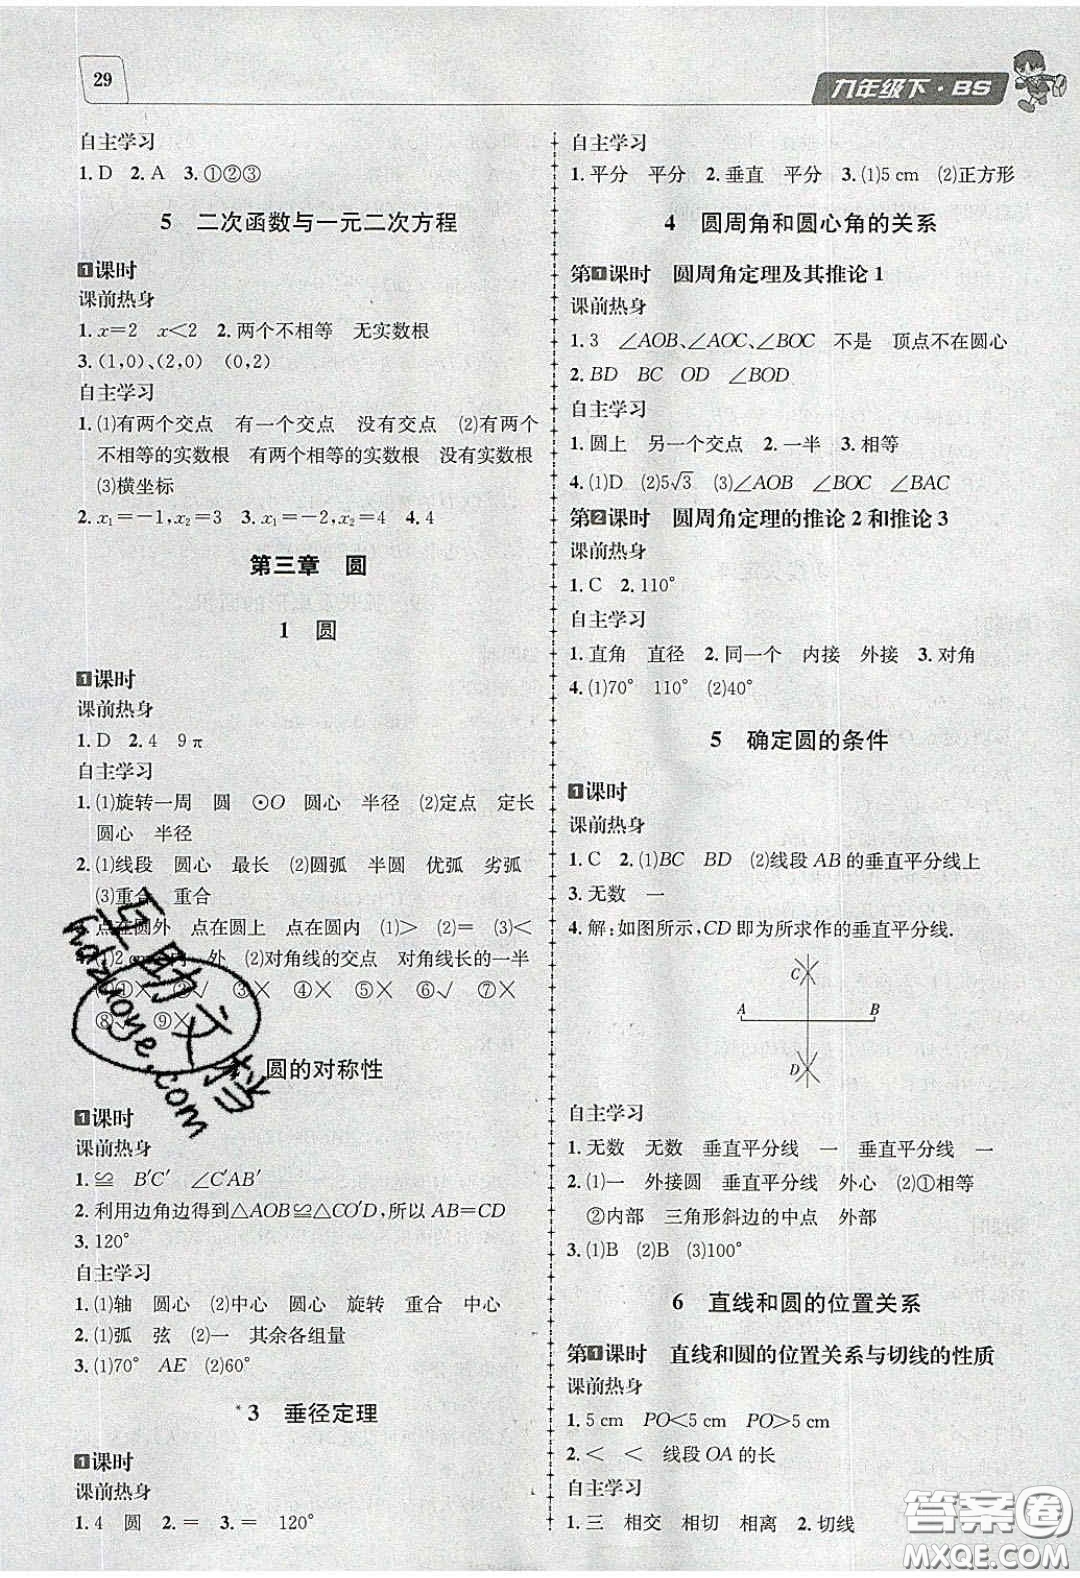 29
九年级下·BS
自主学习
1. D 2. A 3. ①②③
5 二次函数与一元二次方程
1课时
课前热身
1. x=2 x<2 2. 两个不相等 无实数根
3. (1,0)、(2,0) (0,2)
自主学习
1. (1)有两个交点 有一个交点 没有交点 (2)有两个
不相等的实数根 有两个相等的实数根 没有实数根
(3)横坐标
2. x₁=-1,x₂=3 3. x₁=-2,x₂=4 4. 4
第三章 圆
1 圆
1课时
课前热身
1. D 2. 4 9π
自主学习
1. (1)旋转一周 圆 ⊙O 圆心 半径 (2)定点 定长
圆心 半径
2. (1)线段 圆心 最长 (2)圆弧 半圆 优弧 劣弧
(3)重合 重合
点在圆外 点在圆上 点在圆内 (1)> (2)= (3)<
(1)2 cm 内 外 (2)对角线的交点 对角线长的一半
①× ②√ ③× ④× ⑤× ⑥√ ⑦×
⑧√ ⑨×
圆的对称性
1课时
课前热身
1. ≌ B′C′ ∠C′AB′
2. 利用边角边得到△AOB≌△CO′D,所以 AB=CD
3. 120°
自主学习
1. (1)轴 圆心 (2)中心 圆心 旋转 重合 中心
2. (1)弧 弦 (2)一 其余各组量
3. (1)70° AE (2)60°
*3 垂径定理
1课时
课前热身
1. 4 圆 2. = 3. = 120°
自主学习
1. 平分 平分 2. 垂直 平分 3. (1)5 cm (2)正方形
4 圆周角和圆心角的关系
第1课时 圆周角定理及其推论1
课前热身
1. 3 ∠AOB、∠AOC、∠BOC 不是 顶点不在圆心
2. BD BC OD ∠BOD
自主学习
1. 圆上 另一个交点 2. 一半 3. 相等
4. (1)D (2)5√3 (3)∠AOB ∠BOC ∠BAC
第2课时 圆周角定理的推论2和推论3
课前热身
1. C 2. 110°
自主学习
1. 直角 直径 2. 同一个 内接 外接 3. 对角
4. (1)70° 110° (2)40°
5 确定圆的条件
1课时
课前热身
1. C 2. (1)BC BD (2)线段 AB 的垂直平分线上
3. 无数 一
4. 解:如图所示,CD 即为所求作的垂直平分线.
C
A B
D
自主学习
1. 无数 无数 垂直平分线 一 垂直平分线 一
2. (1)一 外接圆 三边垂直平分线 外心 (2)①相等
②内部 三角形斜边的中点 外部
3. (1)B (2)B (3)100°
6 直线和圆的位置关系
第1课时 直线和圆的位置关系与切线的性质
课前热身
1. 5 cm PO<5 cm PO>5 cm
2. < < 线段 OA 的长
自主学习
1. 三 相交 相切 相离 2. 切线
互助文档
hdzuoye.com
答案圈
MXQE.COM